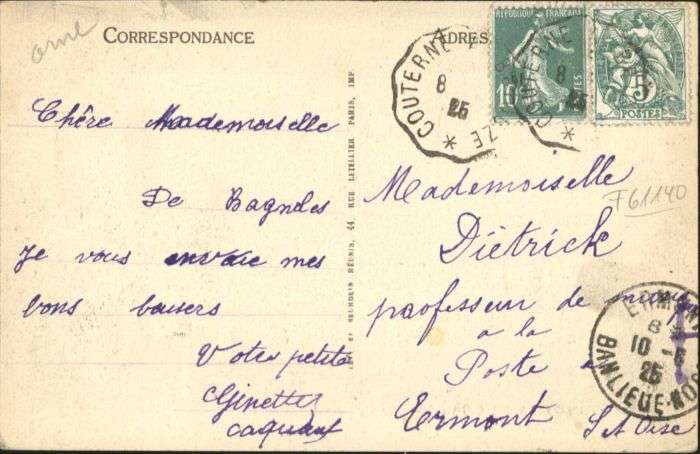 orne
CORRESPONDANCE
ADRES
Chère Mademoiselle
De Bagnoles
Je vous envoie mes
bons baisers
Votre petite
Ginette
IMP. 
RÉUNIS, 44, RUE LETELLIER PARIS, IMP.
COUTERNE
8
25
ZE
RÉPUBLIQUE FRANÇAISE
10
POSTES
COUTERNE
8
25
5
POSTES
F61140
Mademoiselle
Diëtrick
professeur de
a la
Poste
Ermont S et Oise
ERMONT
8
10 - 8
25
BANLIEUE